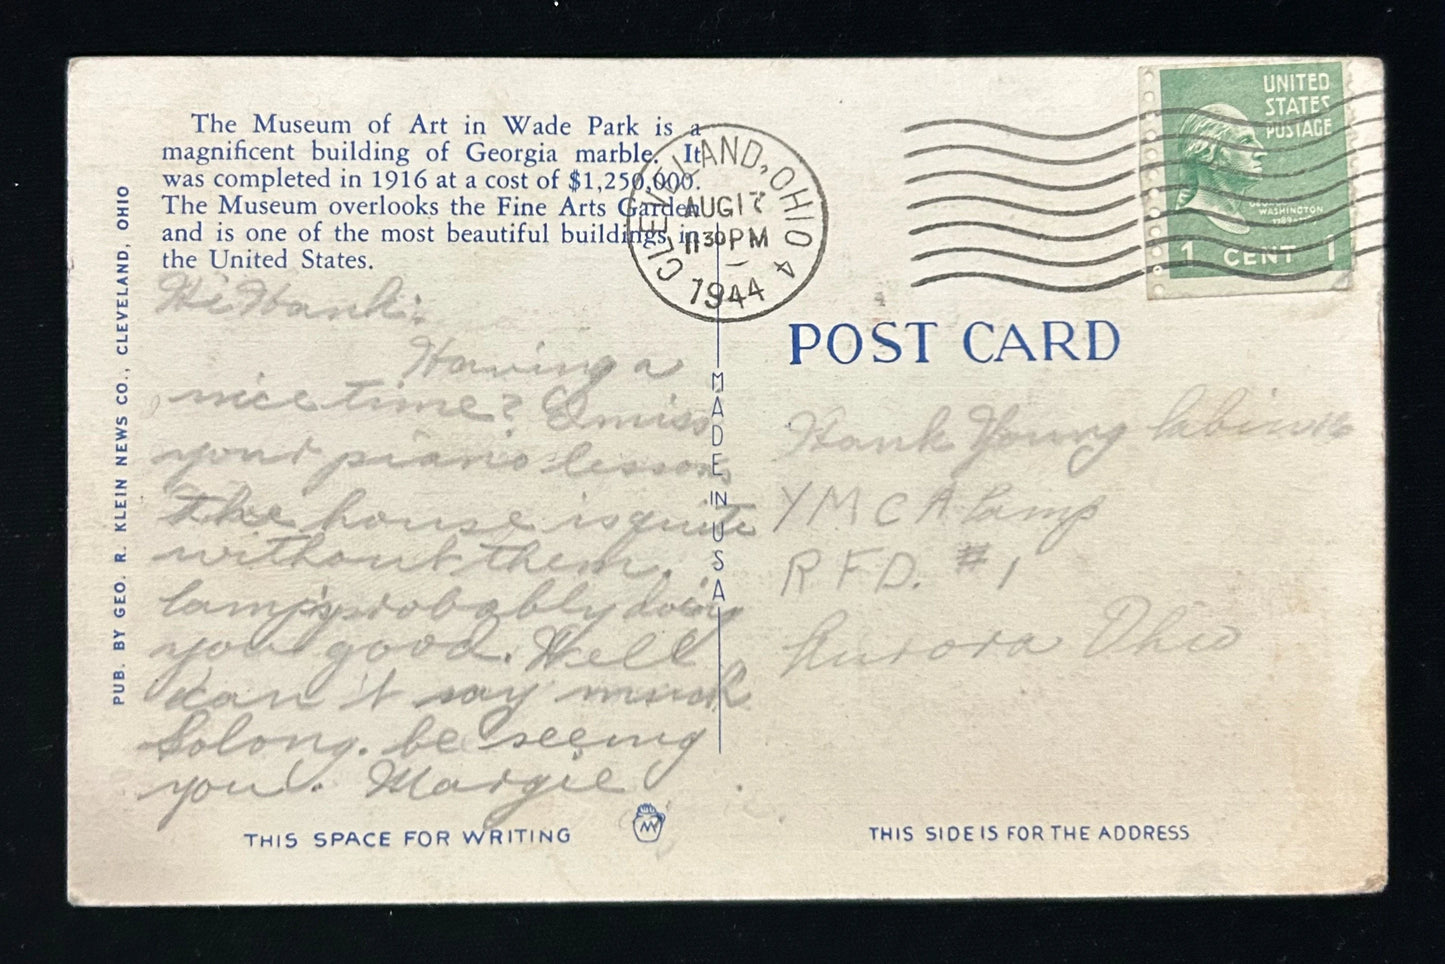 The Museum of Art in Wade Park is a
magnificent building of Georgia marble. It
was completed in 1916 at a cost of $1,250,000.
The Museum overlooks the Fine Arts Garden
and is one of the most beautiful buildings in
the United States.
Hi Hank:
Having a
nice time? I miss
your piano lessons
The house is quite
without them.
Camp's probably doing
you good. Well
can't say much
So long. be seeing
you. Margie
THIS SPACE FOR WRITING
PUB. BY GEO. R. KLEIN NEWS CO., CLEVELAND, OHIO
MADE IN USA
CLEVELAND, OHIO 4
AUG 17
11 30 PM
1944
UNITED
STATES
POSTAGE
GEORGE
WASHINGTON
1789-
1 CENT 1
POST CARD
Hank Young
YMCA Camp
RFD. #1
Aurora Ohio
THIS SIDE IS FOR THE ADDRESS